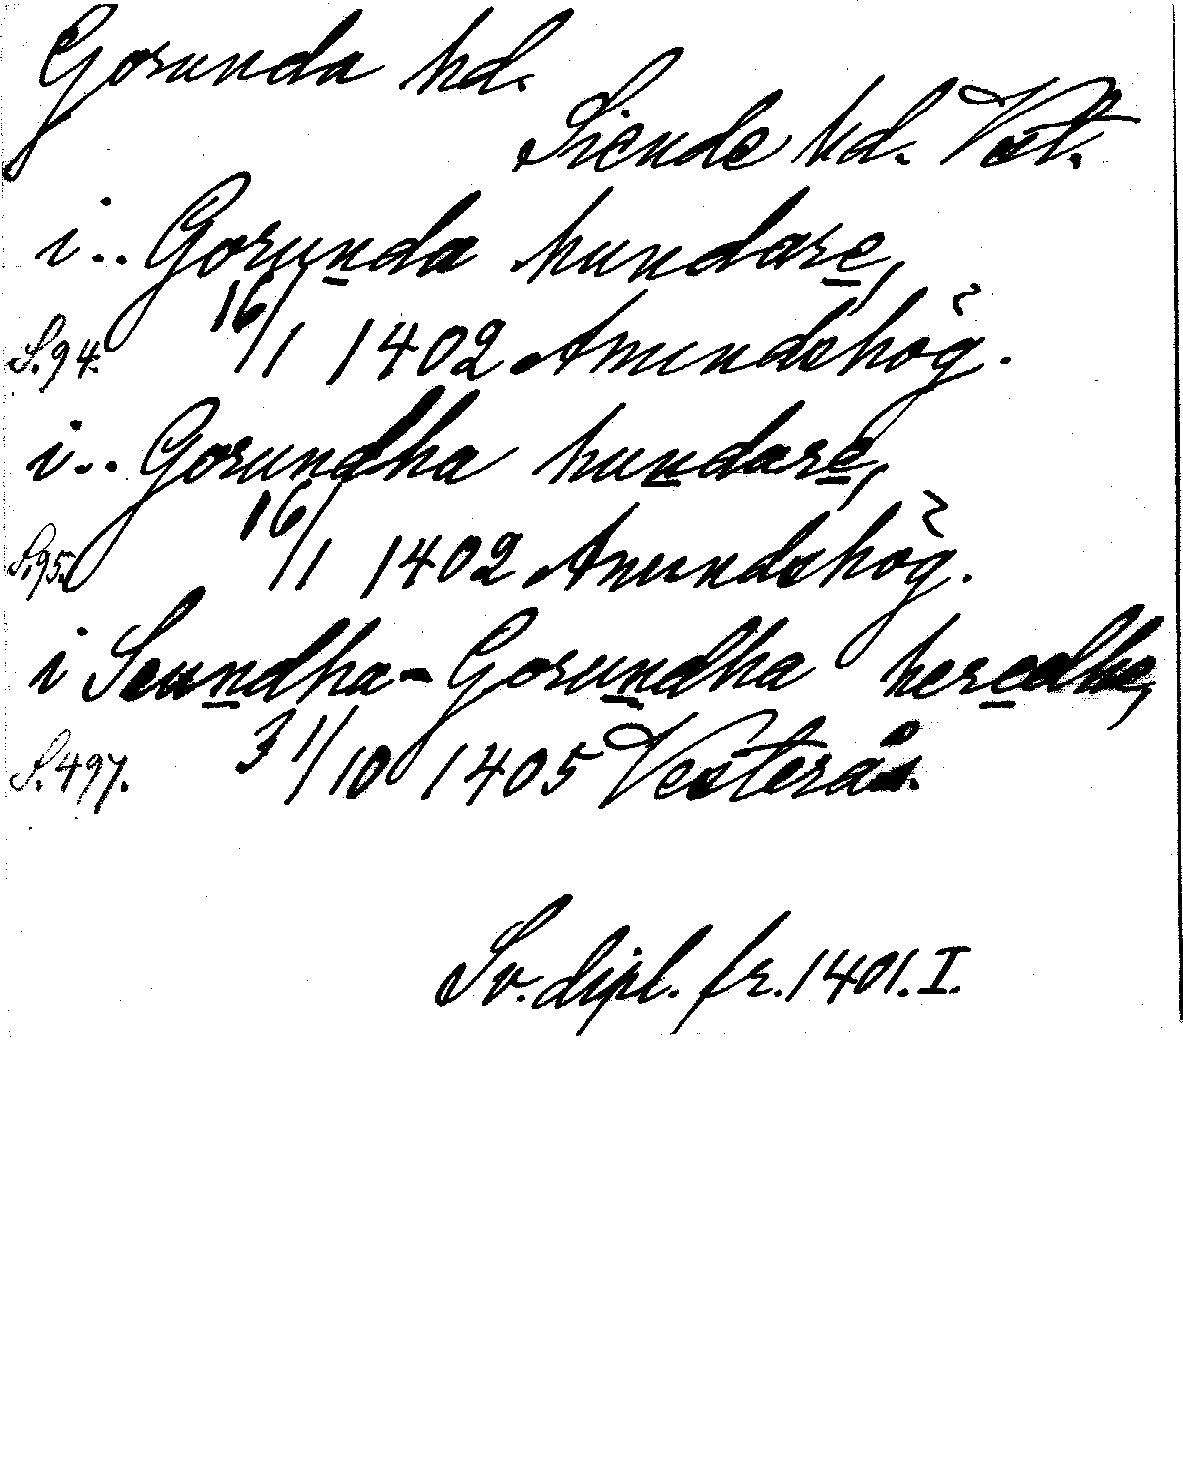 Gorunda hd.
Siende hd. Vestm.
i.. Gorunda hundare,
S. 94. 16/1 1402 Amundshög.
i.. Gorundha hundare,
S. 95. 16/1 1402 Amundshög.
i Seundha-Gorundha heredhe,
S. 497. 31/10 1405 Vesterås.
Sv. dipl. fr. 1401. I.